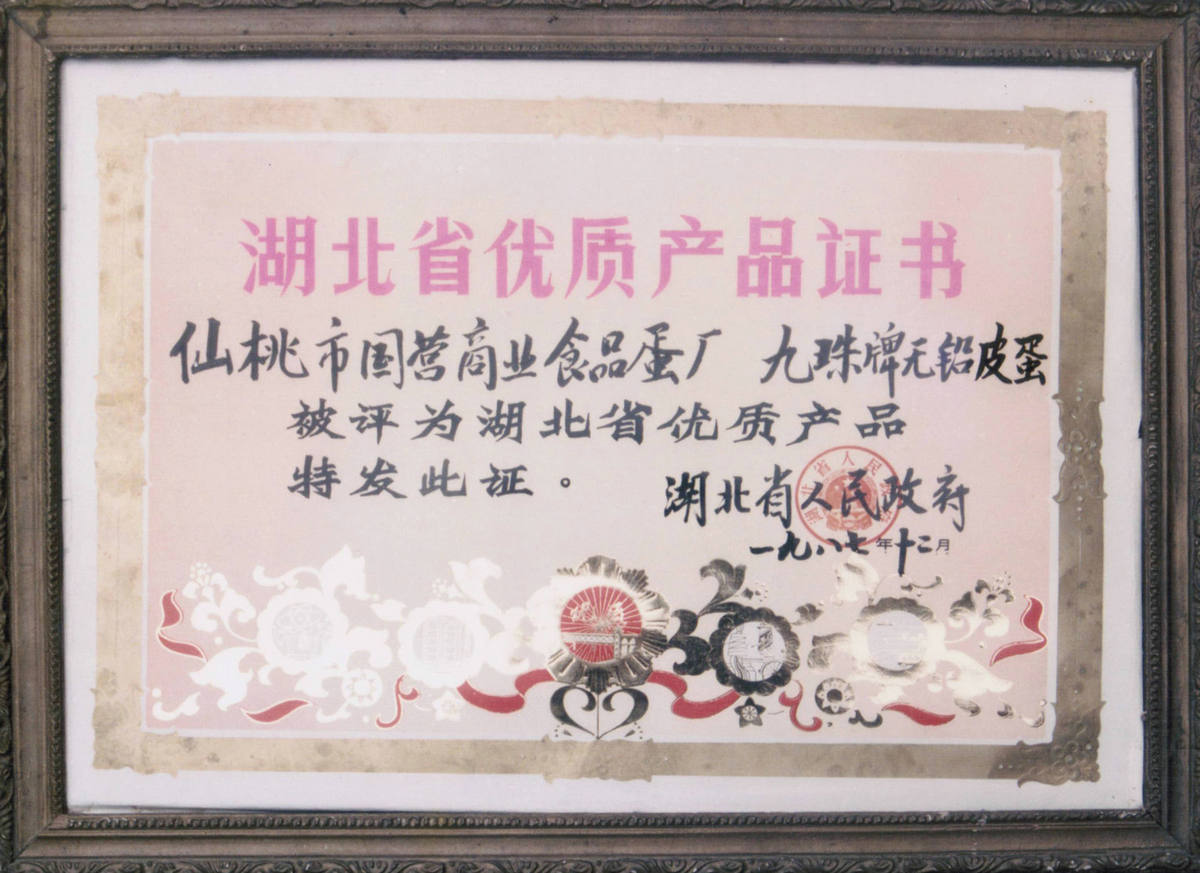 湖北省优质产品证书
仙桃市国营商业食品蛋厂 九珠牌无铅皮蛋
被评为湖北省优质产品
特发此证。
湖北省人民政府
一九八七年十二月